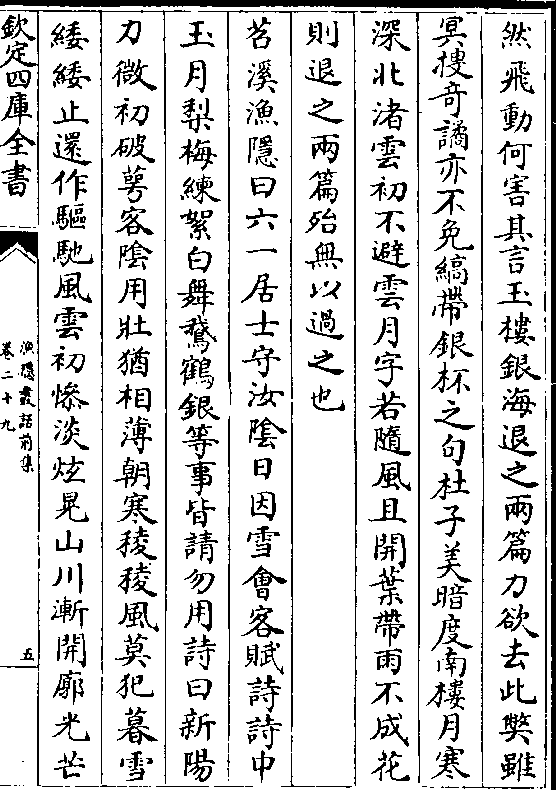 然飛動何害其言玉樓銀海退之兩篇力欲去此弊雖
冥搜奇譎亦不免縞帶銀杯之句杜子美暗度南樓月寒
深北渚雲初不避雲月字若隨風且開葉帶雨不成花
則退之兩篇殆無以過之也
苕溪漁隱曰六一居士守汝陰日因雪會客賦詩詩中
玉月梨梅練絮白舞鵞鶴銀等事皆請勿用詩曰新陽
力微初破萼客陰用壯猶相薄朝寒稜稜風莫犯暮雪
緌緌止還作驅馳風雲初慘淡炫晃山川漸開廓光芒
欽定四庫全書
漁隱叢話前集
卷二十九
五